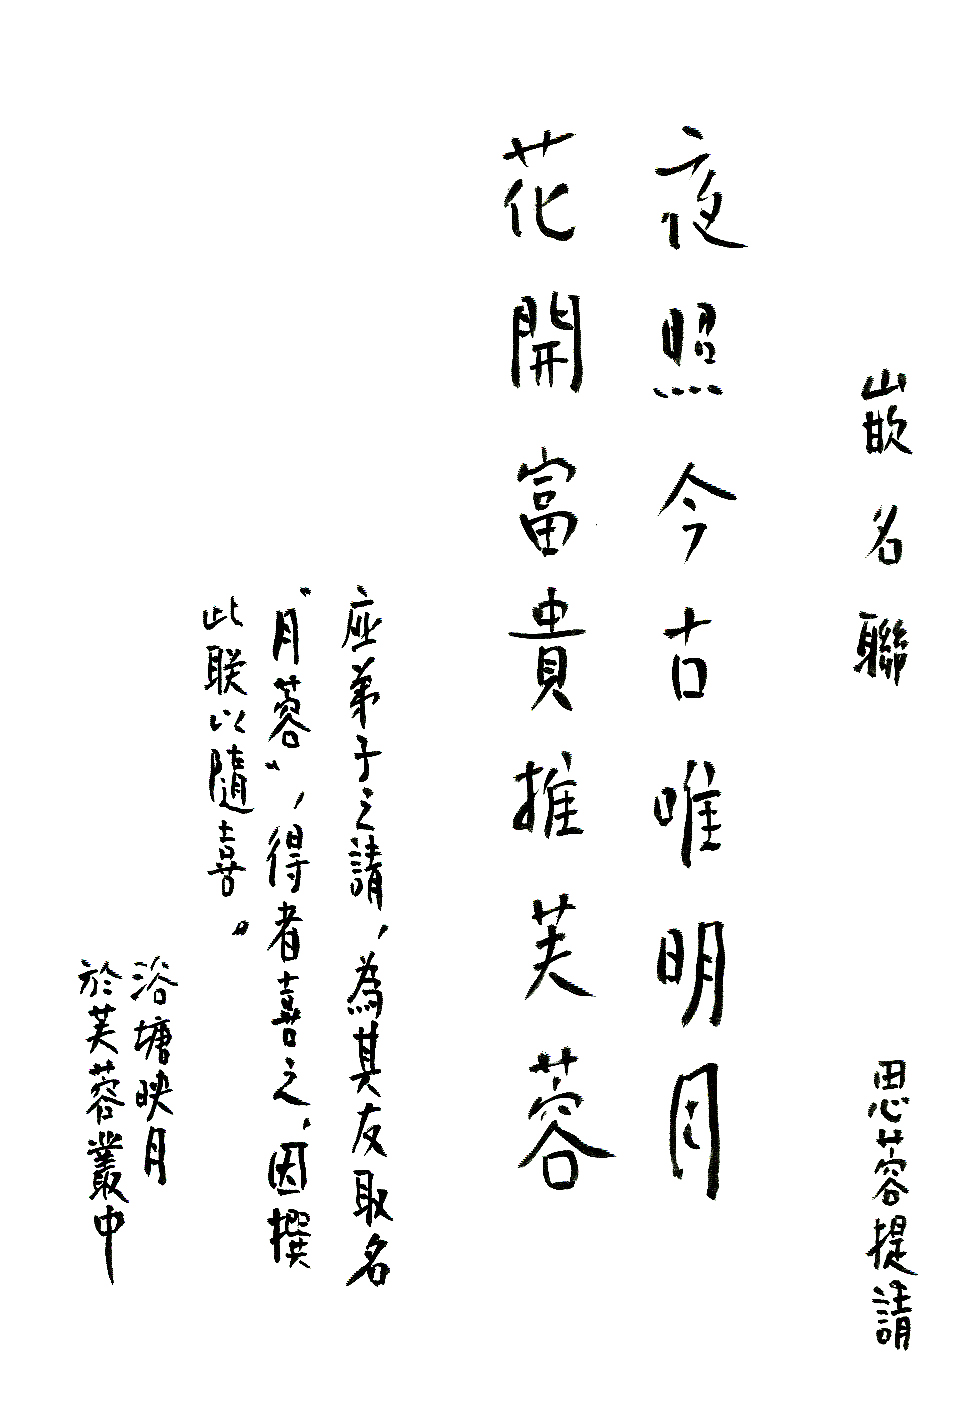 嵌名聯
思蓉提請
夜照今古唯明月
花開富貴推芙蓉
座弟子之請，為其友取名
“月蓉”，得者喜之，因撰
此联以隨喜。
浴塘映月
於芙蓉叢中